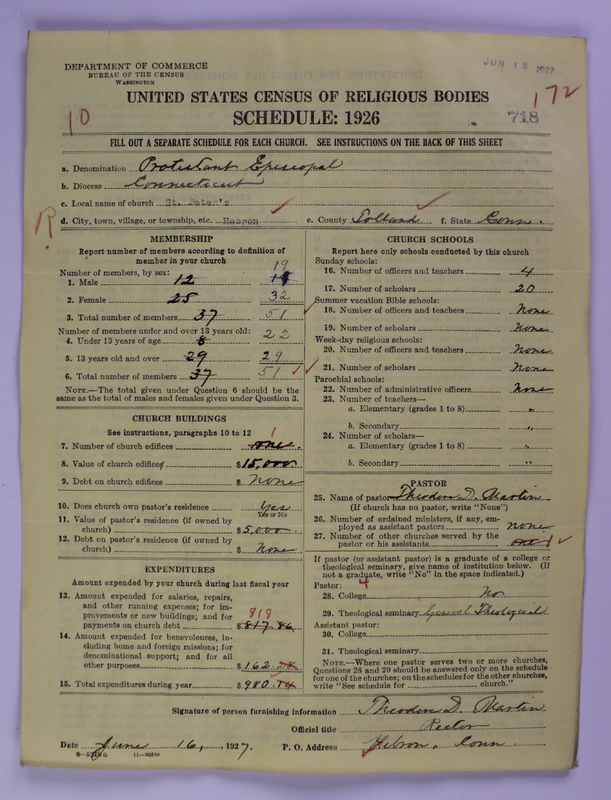 DEPARTMENT OF COMMERCE
BUREAU OF THE CENSUS
WASHINGTON
JUN 18 1927
UNITED STATES CENSUS OF RELIGIOUS BODIES
172
10
SCHEDULE: 1926
718
FILL OUT A SEPARATE SCHEDULE FOR EACH CHURCH. SEE INSTRUCTIONS ON THE BACK OF THIS SHEET
a. Denomination Protestant Episcopal
b. Diocese Connecticut
c. Local name of church St. Peter's
R
d. City, town, village, or township, etc. Hebron e. County Tolland f. State Conn.
MEMBERSHIP
Report number of members according to definition of
member in your church
Number of members, by sex: 19
1. Male 12
2. Female 25 32
3. Total number of members. 37 51
Number of members under and over 13 years old:
4. Under 13 years of age 8 22
5. 13 years old and over 29 29
6. Total number of members 37 51
NOTE.—The total given under Question 6 should be
same as the total of males and females given under Question 3.
CHURCH BUILDINGS
See instructions, paragraphs 10 to 12
7. Number of church edifices one. 1
8. Value of church edifices $15,000.
9. Debt on church edifices $ None
10. Does church own pastor's residence Yes
Yes or No
11. Value of pastor's residence (if owned by
church) $5,000.
12. Debt on pastor's residence (if owned by
church) $ None
EXPENDITURES
Amount expended by your church during last fiscal year
13. Amount expended for salaries, repairs,
and other running expenses; for im-
provements or new buildings; and for 818
payments on church debt $817.86
14. Amount expended for benevolences, in-
cluding home and foreign missions; for
denominational support; and for all
other purposes $162.
15. Total expenditures during year $980.
CHURCH SCHOOLS
Report here only schools conducted by this church
Sunday schools:
16. Number of officers and teachers 4
17. Number of scholars 20
Summer vacation Bible schools:
18. Number of officers and teachers None
19. Number of scholars None
Week-day religious schools:
20. Number of officers and teachers None
21. Number of scholars None
Parochial schools:
22. Number of administrative officers None
23. Number of teachers—
a. Elementary (grades 1 to 8) "
b. Secondary "
24. Number of scholars—
a. Elementary (grades 1 to 8) "
b. Secondary "
PASTOR
25. Name of pastor Theodore D. Martin
(If church has no pastor, write "None")
26. Number of ordained ministers, if any, em-
ployed as assistant pastors none
27. Number of other churches served by the
pastor or his assistants one 1
If pastor (or assistant pastor) is a graduate of a college or
theological seminary, give name of institution below. (If
not a graduate, write "No" in the space indicated.)
Pastor: 4
28. College No
29. Theological seminary General Theological
Assistant pastor:
30. College
31. Theological seminary
NOTE.—Where one pastor serves two or more churches,
Questions 28 and 29 should be answered only on the schedule
for one of the churches; on the schedules for the other churches,
write "See schedule for church."
Signature of person furnishing information Theodore D. Martin
Official title Rector
Date June 16, 1927. P. O. Address Hebron, Conn.